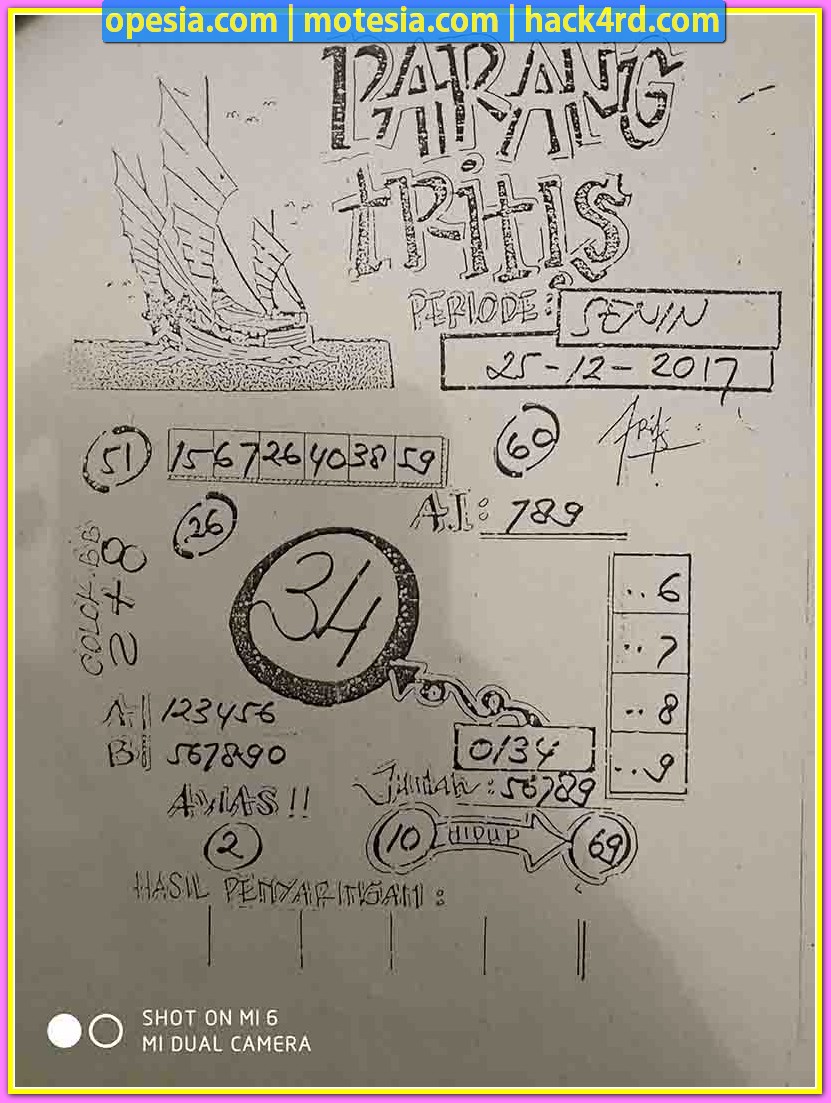 opesia.com | motesia.com | hack4rd.com
PARANG
tRitis
PERIODE: SENIN
25-12-2017
51
15 67 26 40 38 59
60
Tritis
26
A.I: 789
COLOK.BB
2 + 8
34
..6
..7
..8
..9
A || 123456
B || 567890
0134
Jumlah : 56789
AWAS !!
2
10 HIDUP 69
HASIL PENYARINGAN :
SHOT ON MI 6
MI DUAL CAMERA